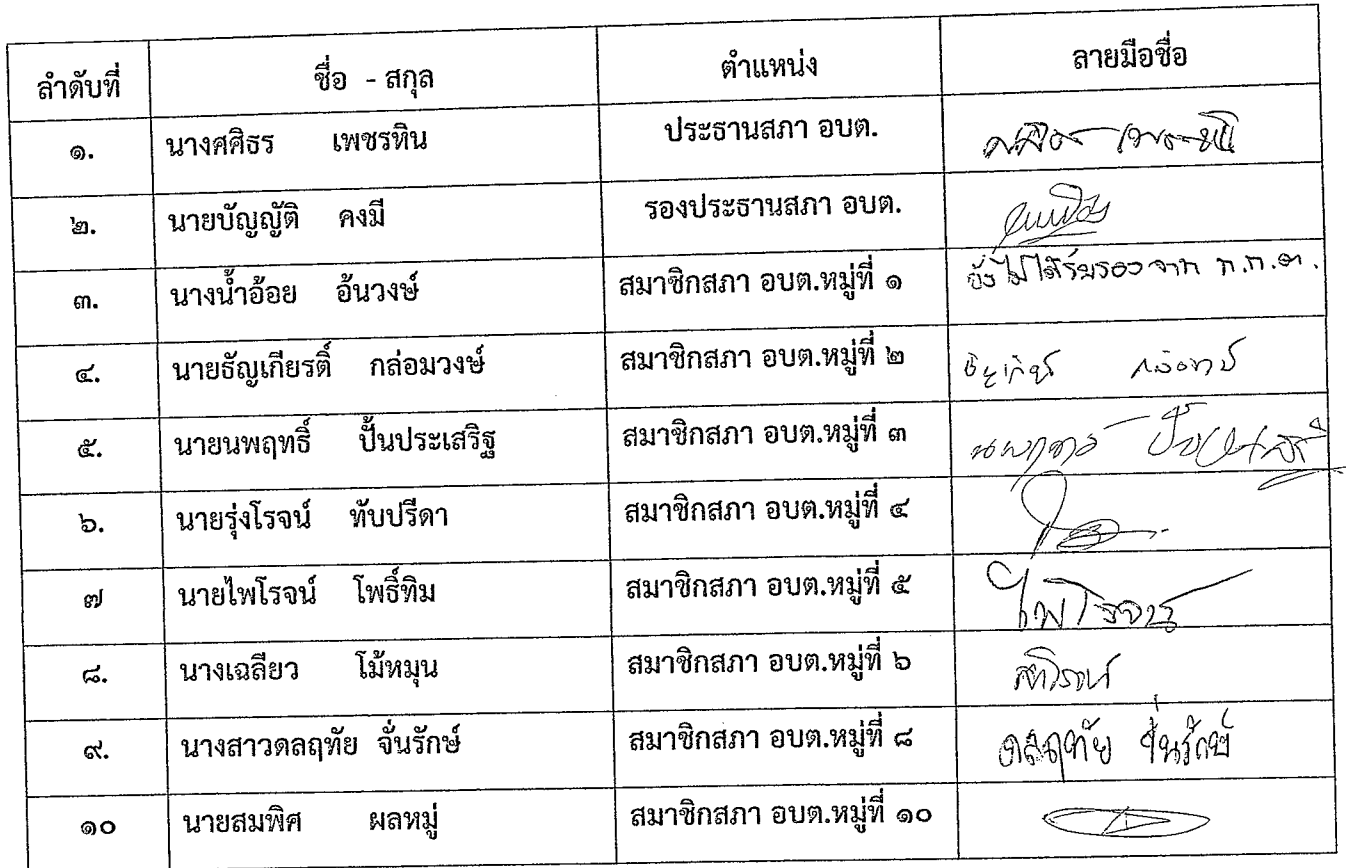 ลำดับที่ ชื่อ - สกุล ตำแหน่ง ลายมือชื่อ
๑. นางศศิธร เพชรทิน ประธานสภา อบต.
๒. นายบัญญัติ คงมี รองประธานสภา อบต.
๓. นางน้ำอ้อย อ้นวงษ์ สมาชิกสภา อบต.หมู่ที่ ๑ ยังไม่ได้รับรองจาก ก.ก.ต.
๔. นายธัญเกียรติ์ กล่อมวงษ์ สมาชิกสภา อบต.หมู่ที่ ๒
๕. นายนพฤทธิ์ ปั้นประเสริฐ สมาชิกสภา อบต.หมู่ที่ ๓
๖. นายรุ่งโรจน์ ทับปรีดา สมาชิกสภา อบต.หมู่ที่ ๔
๗ นายไพโรจน์ โพธิ์ทิม สมาชิกสภา อบต.หมู่ที่ ๕ ไพโรจน์
๘. นางเฉลียว โม้หมุน สมาชิกสภา อบต.หมู่ที่ ๖
๙. นางสาวดลฤทัย จั่นรักษ์ สมาชิกสภา อบต.หมู่ที่ ๘ ดลฤทัย จั่นรักษ์
๑๐ นายสมพิศ ผลหมู่ สมาชิกสภา อบต.หมู่ที่ ๑๐